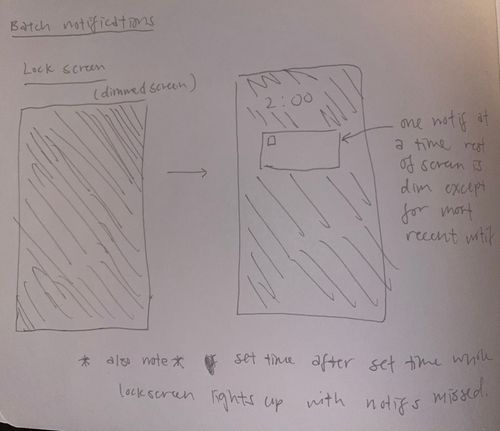 Batch notifications
Lock screen
(dimmed screen)
2:00
one notif at
a time rest
of screen is
dim except
for most
recent notif
* also note * set time after set time whole
lockscreen lights up with notifs missed.